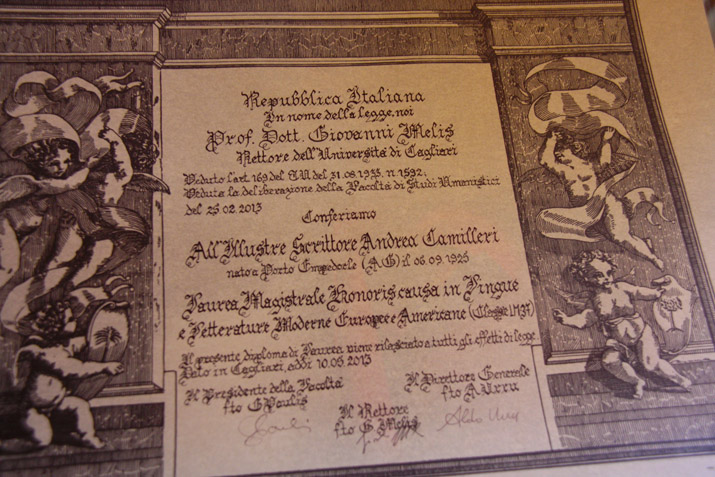 Repubblica Italiana
In nome della legge, noi
Prof. Dott. Giovanni Melis
Rettore dell'Università di Cagliari
Veduto l'art. 169 del T.U. del 31.08.1933. n. 1592,
Veduta la deliberazione della Facoltà di Studi Umanistici
del 25.02.2013
Conferiamo
All'Illustre Scrittore Andrea Camilleri
nato a Porto Empedocle (AG) il 06.09.1925
Laurea Magistrale Honoris causa in Lingue
e Letterature Moderne Europee e Americane (Classe LM37)
Il presente diploma di Laurea viene rilasciato a tutti gli effetti di legge
Dato in Cagliari, addì 10.05.2013
Il Presidente della Facoltà
fto G Paulis
Il Rettore
fto G. Melis
Il Direttore Generale
fto A. Urru